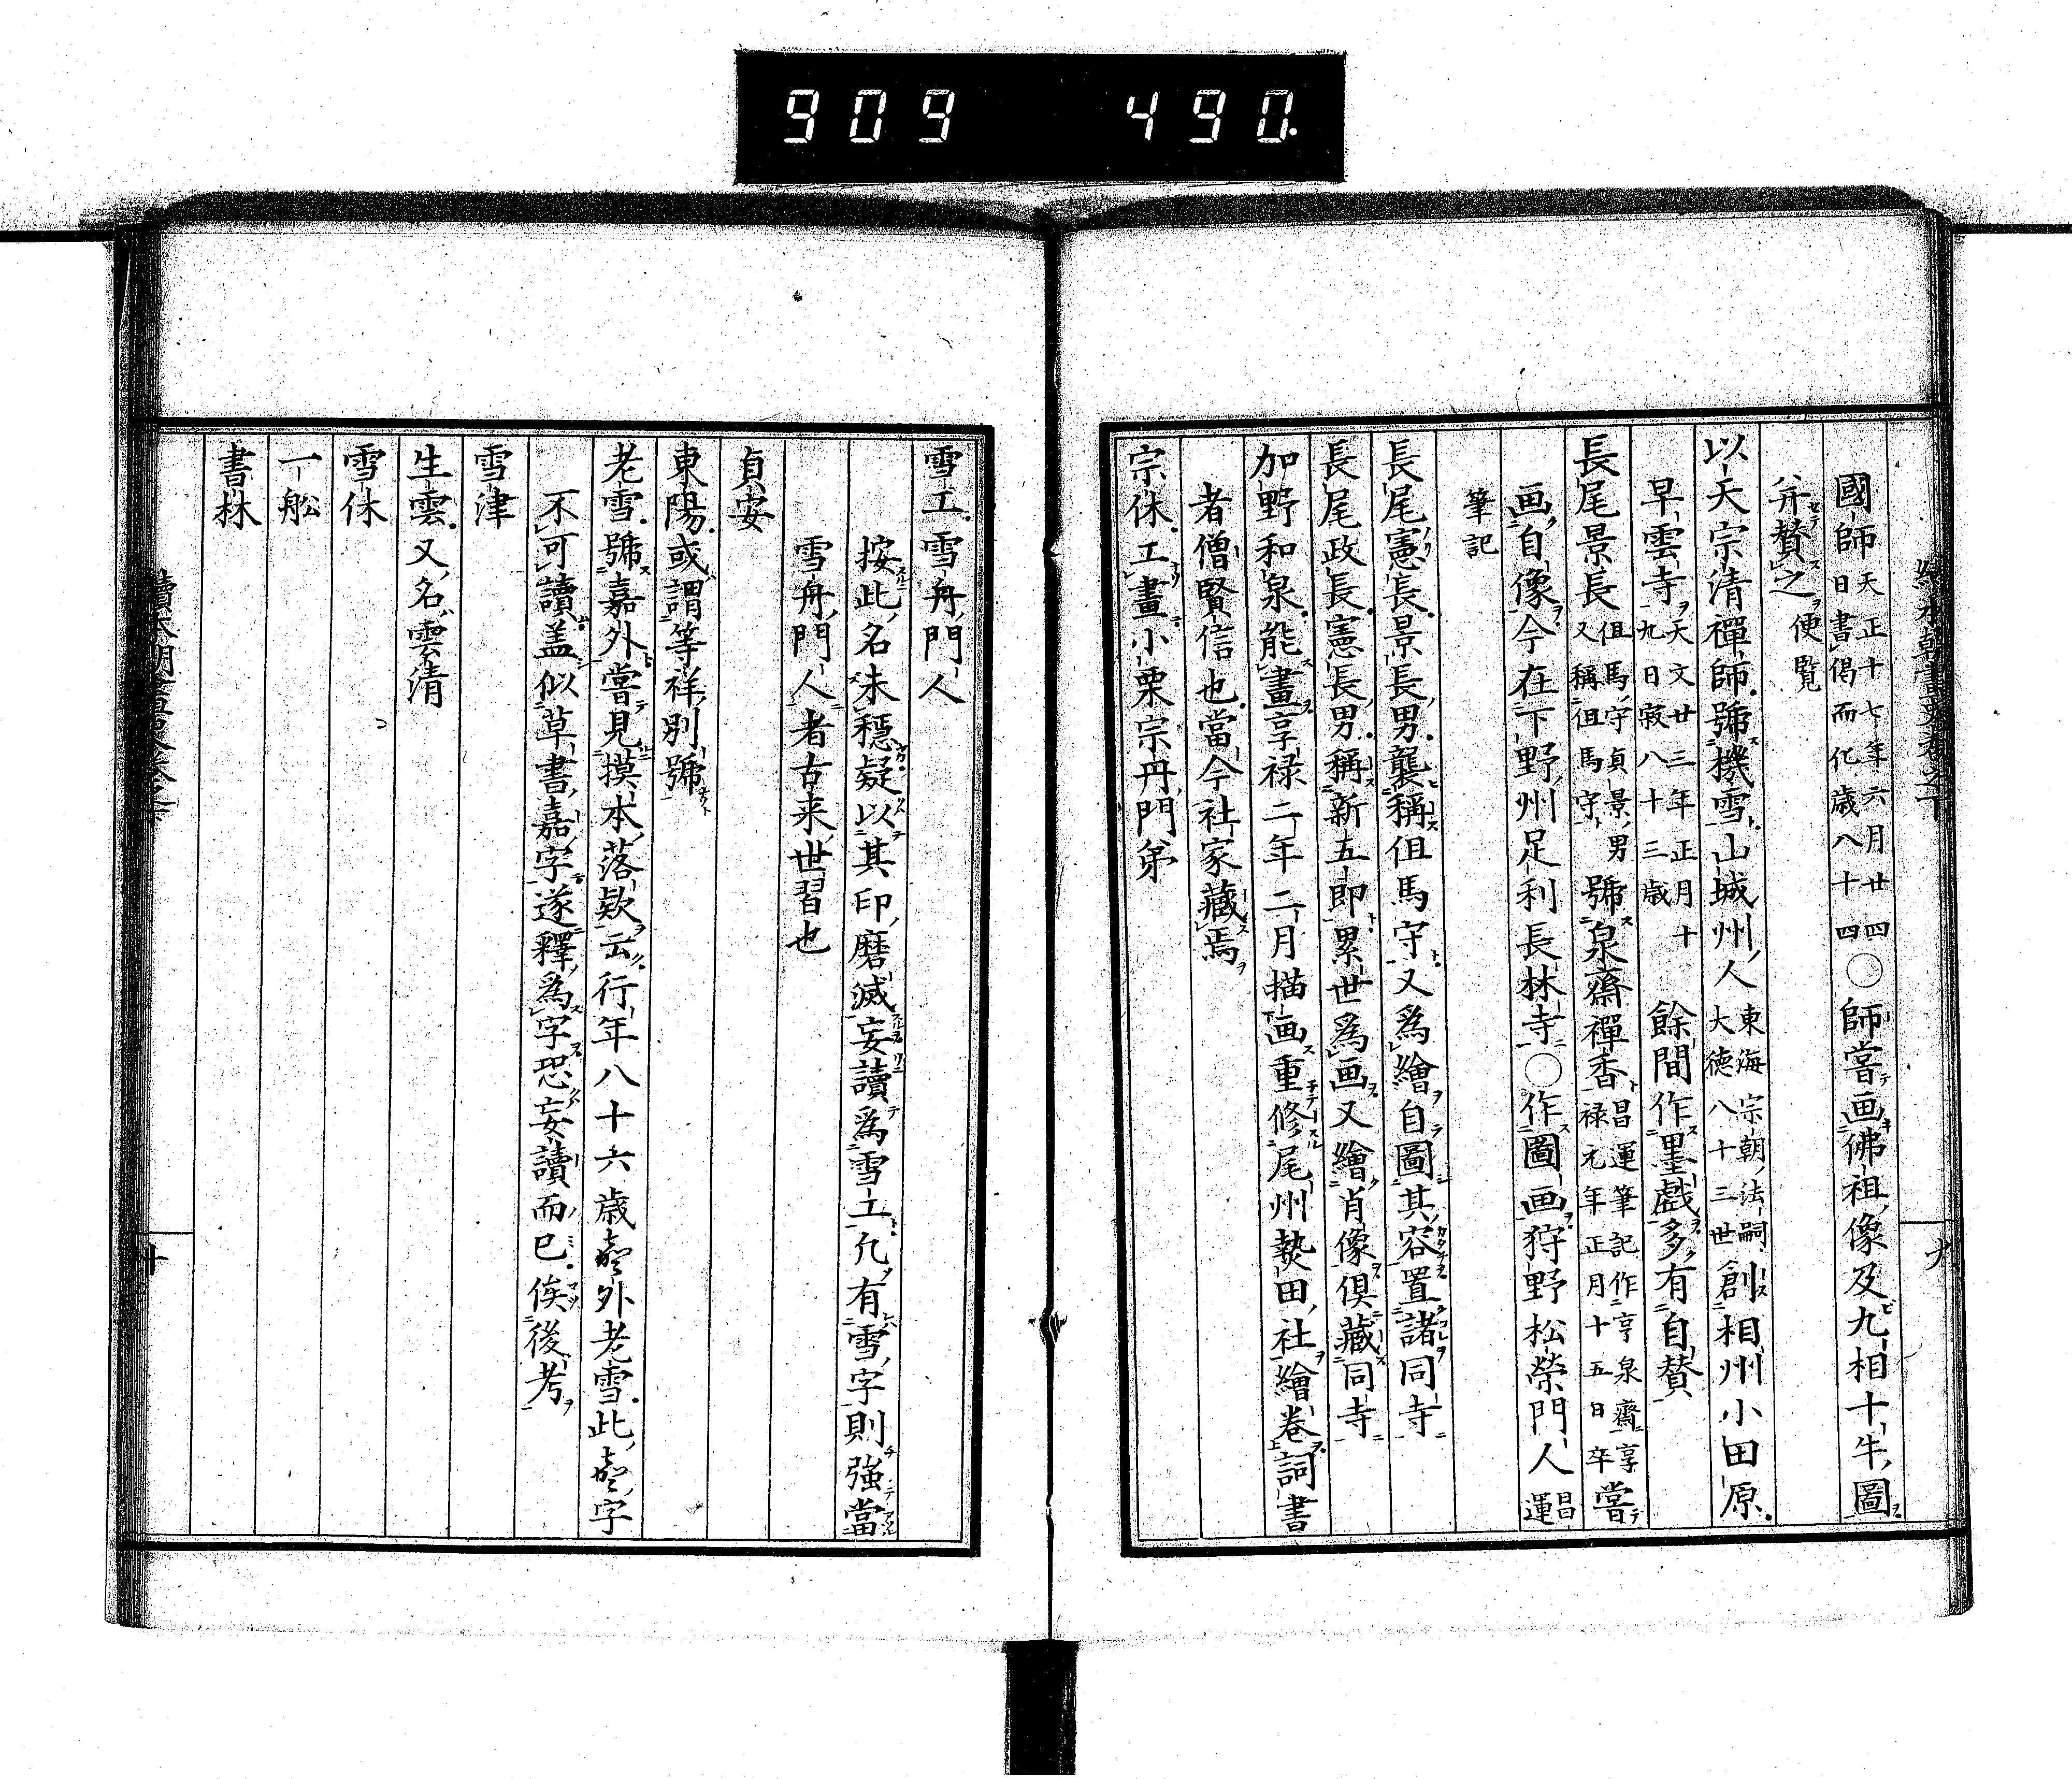 909 490.
續本朝畫史卷之下
九
國師天正十七年六月廿四日書偈而化歳八十四○師嘗画佛祖像及九相十牛圖
并賛之便覧
以天宗清禪師號機雪山城州人東海宗朝法嗣大德八十三世創相州小田原
早雲寺天文廿三年正月十九日寂八十三歳餘間作墨戯多有自賛
長尾景長但馬守貞景男又稱但馬守號泉齋禪香昌運筆記作亨泉齋享禄元年正月十五日卒嘗
画自像今在下野州足利長林寺○作圖画狩野松榮門人昌運
筆記
長尾憲長景長男襲稱但馬守又爲繪自圖其容置諸同寺
長尾政長憲長男稱新五即累世爲画又繪肖像倶藏同寺
加野和泉能畫享禄二年二月描画重修尾州熱田社繪卷詞書
者僧賢信也當今社家藏焉
宗休工畫小栗宗丹門弟
雪工雪舟門人
按此名未穩疑以其印磨滅妄讀爲雪工凡有雪字則強當
雪舟門人者古来世習也
貞安
東陽或謂等祥別號
老雪號嘉外嘗見摸本落欵云行年八十六歳嘉外老雪此字
不可讀盖似草書嘉字遂釋爲字恐妄讀而已俟後考
雪津
生雲又名雲清
雪休
一舩
書林
續本朝畫史卷之下
十